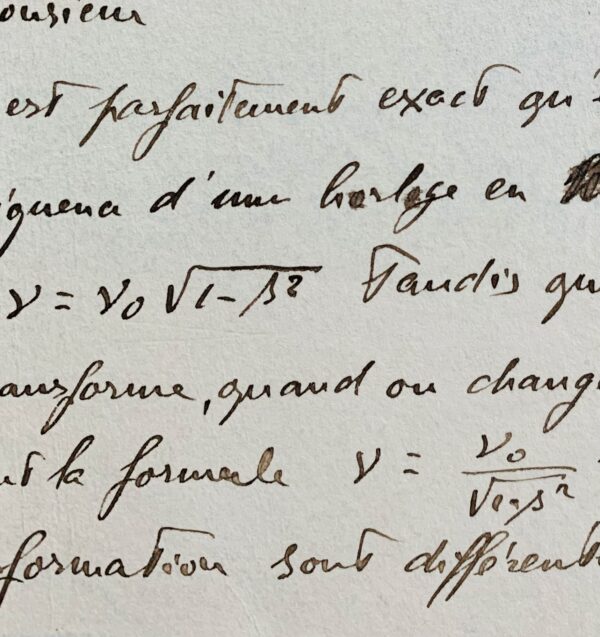 onsieur
est parfaitement exact qu'
équence d'une horloge en
ν = ν₀ √1-β² Tandis qu
ansforme, quand on chang
nt la formule ν = ν₀/√1-β²
formation sont différent